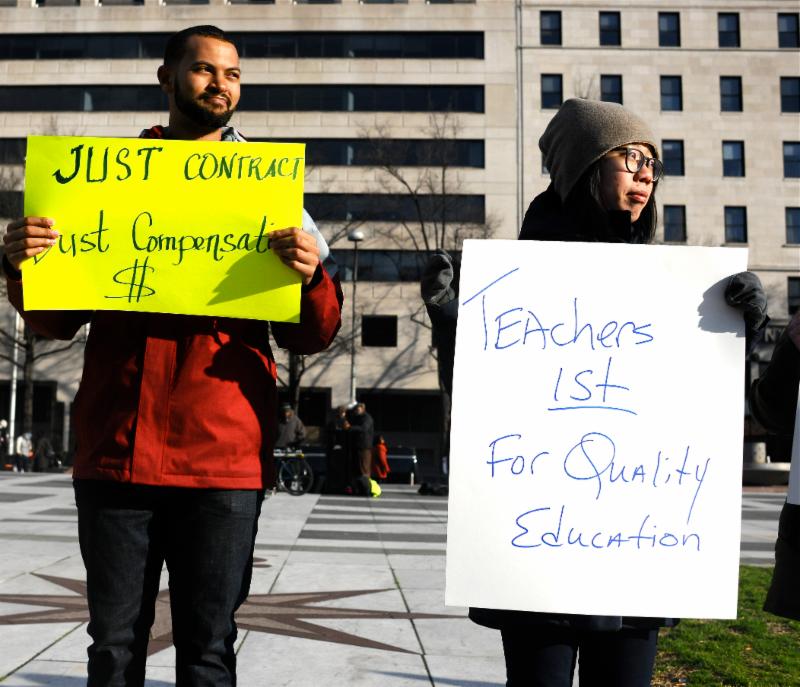 JUST CONTRACT
Just Compensati
$
TEAchers
1st
For QuALity
EducAtion